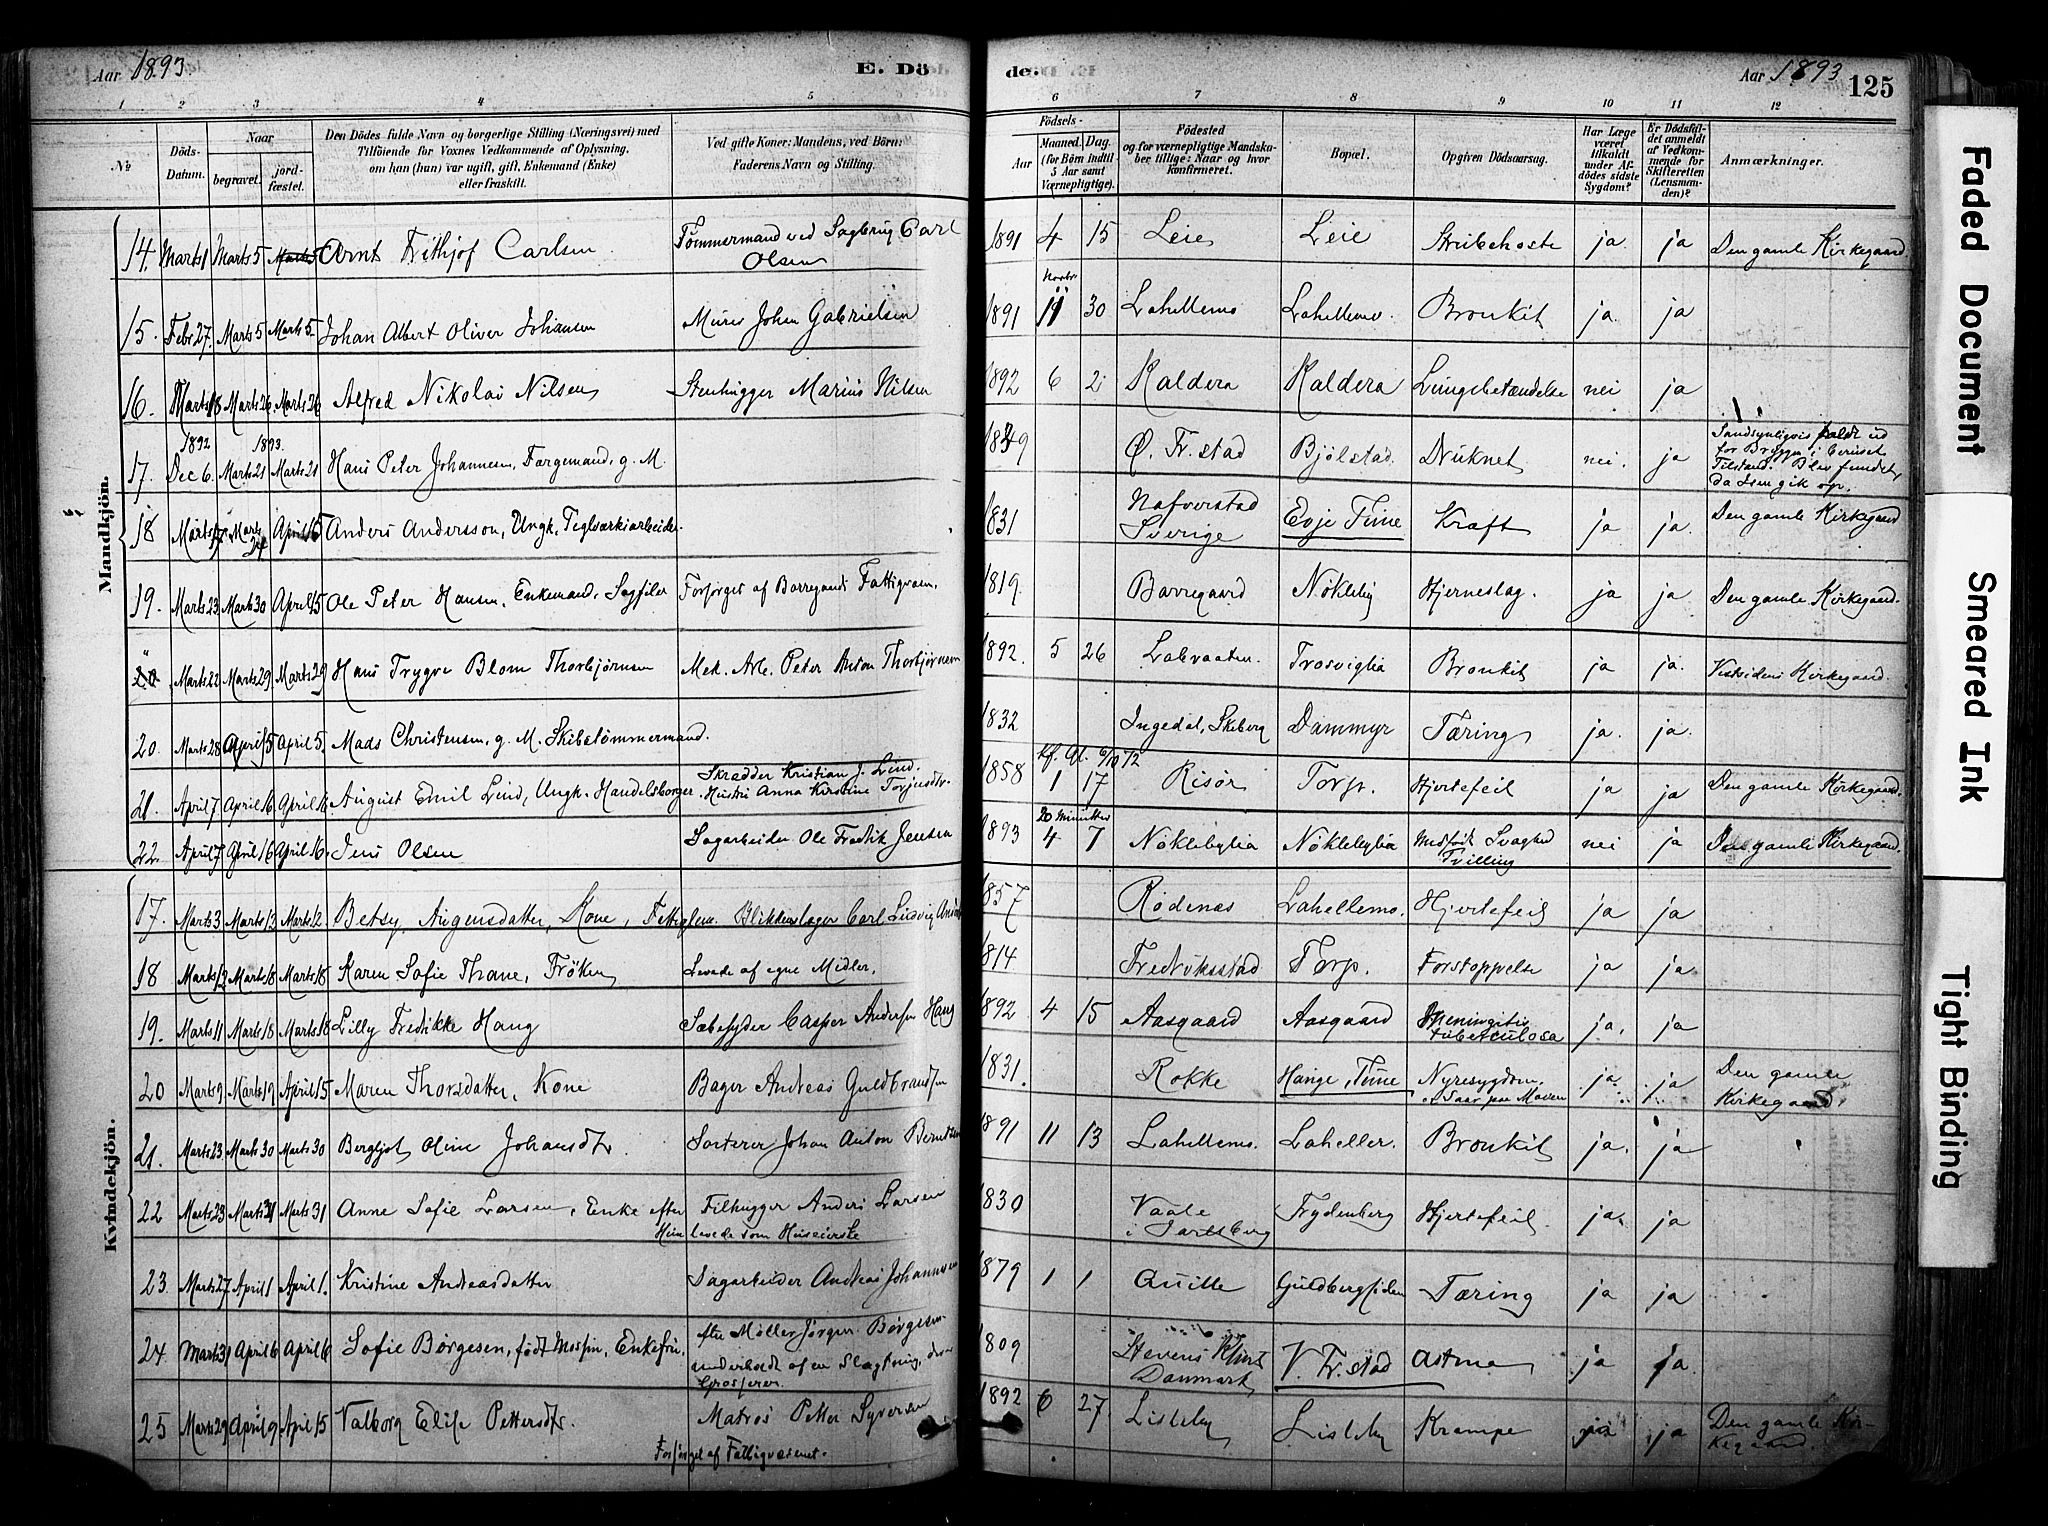 Aar 1893 E. Döde. Aar 1893 125
1 2 3 4 5 6 7 8 9 10 11 12
№ Döds-Datum. Naar begravet. jordfæstet. Den Dödes fulde Navn og borgerlige Stilling (Næringsvei) med Tilföiende for Voxnes Vedkommende af Oplysning, om han (hun) var ugift, gift, Enkemand (Enke) eller fraskilt. Ved gifte Koner: Mandens, ved Börn: Faderens Navn og Stilling. Födsels- Aar Maaned. Dag. (for Börn indtil 5 Aar samt Værnepligtige). Födested og for værnepligtige Mandskaber tillige: Naar og hvor konfirmeret. Bopæl. Opgiven Dödsaarsag. Har Læge været tilkaldt under Afdödes sidste Sygdom? Er Dödsfaldet anmeldt af Vedkommende for Skifteretten (Lensmanden)? Anmærkninger.
Mandkjön.
14. Marts 1 Marts 5 Marts 5 Arnt Frithjof Carlsen Tømmermand ved Sagbrug Carl Olsen 1891 4 15 Leie Leie Stribehoste ja ja Den gamle Kirkegaard
15. Febr 27. Marts 5 Marts 5 Johan Albert Oliver Johansen Murer Johan Gabrielsen 1891 11 30 Lahellemo Lahellemo. Bronkit ja ja
16. Marts 18 Marts 26 Marts 26 Alfred Nikolai Nilsen Stenhugger Marius Nilsen 1892 6 2 Kaldera Kaldera Lungebetændelse nei ja
1892 1893.
17. Dec 6. Marts 21 Marts 21 Hans Peter Johannesen, Færgemand, g. M. 1849 Ø. Fr.stad Bjölstad. Druknet nei. ja Sandsynligvis faldt ud for Bryggen i beruset Tilstand. Blev fundet, da Isen gik op.
18 Marts 17 Marts 24 April 15 Anders Andersson, Ungk. Teglværksarbeider. 1831 Nafverstad Sverige Evje Tune Kræft ja ja. Den gamle Kirkegaard
19. Marts 23 Marts 30 April 15 Ole Peter Hansen, Enkemand, Sagfiler Forsørget af Borregaards Fattigvæsen. 1819. Borregaard Nökleby Hjerneslag. ja ja Den gamle Kirkegaard.
20 Marts 22 Marts 29. Marts 29 Hans Trygve Blom Thorbjørnsen Mek. Arb. Peter Anton Thorbjørnsen 1892. 5 26 Trosviglia Bronkit ja ja. Vestsidens Kirkegaard.
20. Marts 28 April 5 April 5 Mads Christensen, g. M. Skibstømmermand. 1832 Ingedal, Skeberg Dammyr Tæring ja ja.
21. April 7 April 16 April 16 August Emil Lind, Ungk. Handelsborger. Skrædder Kristian J. Lind. Hustru Anna Kirstine 1858 1 17 Risör Torp. Hjertefeil ja ja Den gamle Kirkegaard.
20 Minutter
22. April 7 April 16 April 16. Jens Olsen Sagarbeider Ole Fredrik Jensen 1893 4 7 Nöklebylia Nöklebylia Medfödt Svaghed Tvilling nei ja Den gamle Kirkegaard.
Kvindekjön.
17. Marts 3 Marts 12 Marts 12 Betsy Augunsdatter, Kone, Fattiglem. Blikkenslager Carl Ludvig 1857 Rödenæs Lahellemo. Hjertefeil ja ja
18 Marts 12 Marts 18 Marts 18 Karen Sofie Thane, Fröken Levede af egne Midler. 1814 Fredriksstad Torp. Forstoppelse ja ja
19. Marts 11 Marts 18 Marts 18 Lilly Fredrikke Haug Sæbesyder Casper Andersen Haug 1892 4 15 Aasgaard Aasgaard Meningitis tuberculosa ja. ja
20 Marts 9 Marts 19 April 15 Maren Thorsdatter, Kone Bager Andreas Guldbrandsen 1831. Rokke Hauge, Tune Nyresygdom. Saar paa Maven ja ja Den gamle Kirkegaard.
21. Marts 23 Marts 30 Marts 30 Bergljot Oline Johansdtr. Sorterer Johan Anton Berntsen 1891 11 13 Lahellemo. Laheller. Bronkit ja. ja
22 Marts 23 Marts 31 Marts 31 Anne Sofie Larsen, Enke efter Filhugger Anders Larsen Hun levede som Huseierske 1830 Vaale i Jarlsberg Frydenberg Hjertefeil. ja. ja
23. Marts 27 April 1 April 1. Kristine Andreasdatter Sagarbeider Andreas Johannsen 1879 1 1 Quille Guldbergsiden Tæring ja ja
24. Marts 31 April 6 April 6 Sofie Börgesen, født Enkefru, efter Møller Jörgen Börgesen underholdt af en Slægtning, Grosserer 1809 Stevens Klint Danmark V. Fr.stad Astma ja ja
25 Marts 29 April 9 April 15 Valborg Elise Pettersdtr. Matros Petter Syversen Forsørget af Fattigvæsenet. 1892 6 27 Lisleby Lisleby Krampe ja ja Den gamle Kirkegaard.
Faded Document
Smeared Ink
Tight Binding